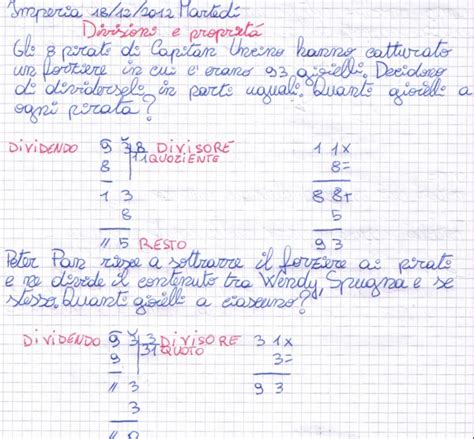 Imperia 18/12/2012 Martedì
Divisioni e proprietà
Gli 8 pirati di Capitan Uncino hanno catturato
un forziere in cui c'erano 93 gioielli. Decidono
di dividerseli in parti uguali. Quanti gioielli a
ogni pirata?
DIVIDENDO 9 3 8 DIVISORE 1 1x
8 11 QUOZIENTE 8=
1 3 8 8+
8 5
// 5 RESTO 9 3
Peter Pan riesce a sottrarre il forziere ai pirati
e ne divide il contenuto tra Wendy, Spugna e se
stesso. Quanti gioielli a ciascuno?
DIVIDENDO 9 3 3 DIVISORE 3 1x
9 31 QUOTO 3=
// 3 9 3
3
// 0